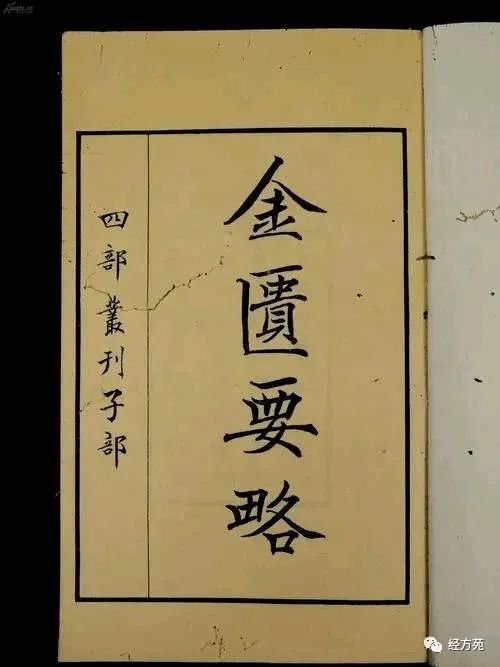 金匱要略
四部叢刊子部
经方苑